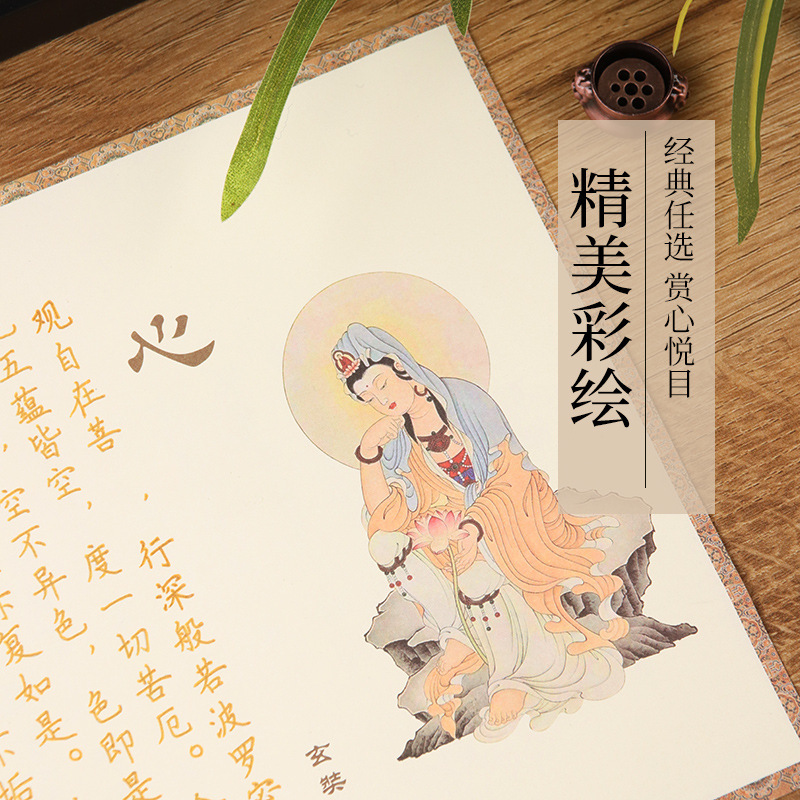 经典任选 赏心悦目
精美彩绘
心
观自在菩，行深般若波罗
五蕴皆空，度一切苦厄。
，空不异色，色即是
复如是。
不垢
玄奘